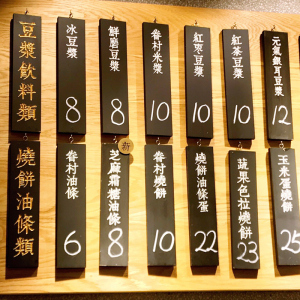 豆漿飲料類
冰豆漿
8
鮮磨豆漿
8
眷村米漿
10
紅棗豆漿
10
紅茶豆漿
10
元氣銀耳豆漿
12
燒餅油條類
眷村油條
6
新
芝麻霜糖油條
8
眷村燒餅
10
燒餅油條蛋
22
蔬果色拉燒餅
23
玉米蛋燒餅
25